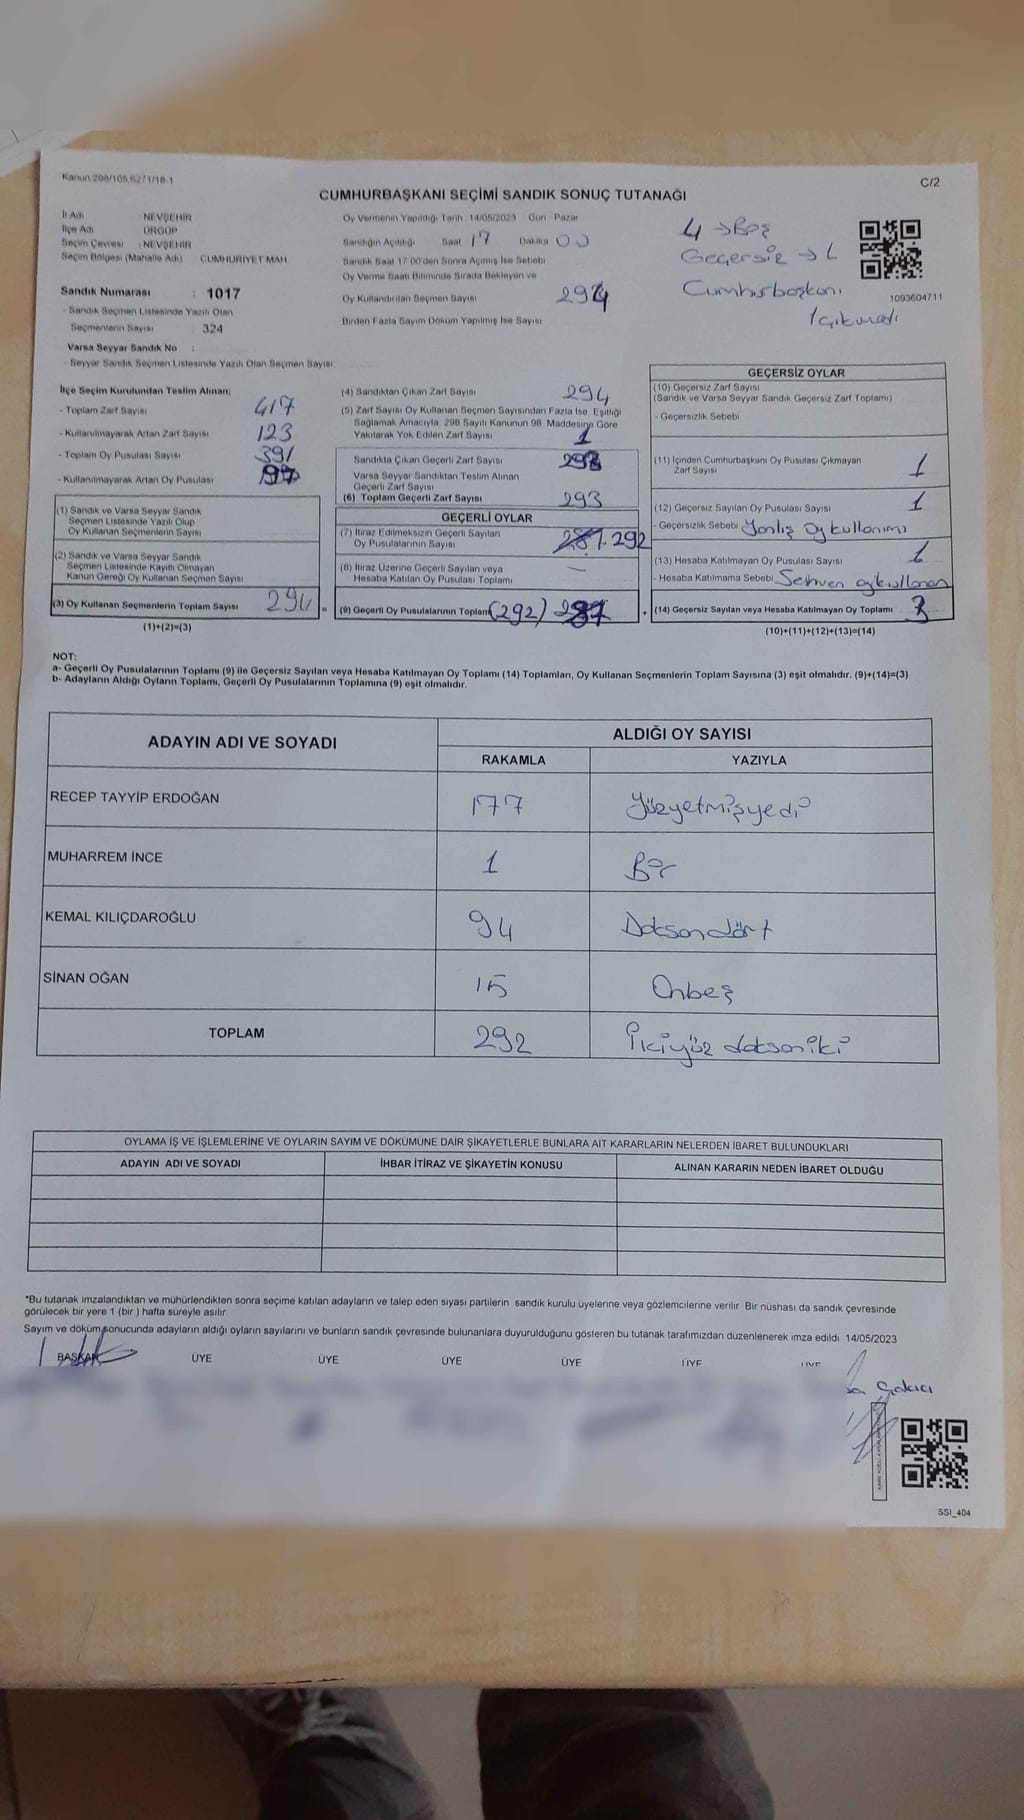 Kanun:298/105,6271/18-1
C/2
CUMHURBAŞKANI SEÇİMİ SANDIK SONUÇ TUTANAĞI
İl Adı NEVŞEHİR
İlçe Adı ÜRGÜP
Seçim Çevresi : NEVŞEHİR
Seçim Bölgesi (Mahalle Adı) CUMHURİYET MAH
Sandık Numarası : 1017
- Sandık Seçmen Listesinde Yazılı Olan
Seçmenlerin Sayısı 324
Varsa Seyyar Sandık No :
- Seyyar Sandık Seçmen Listesinde Yazılı Olan Seçmen Sayısı
Oy Vermenin Yapıldığı Tarih : 14/05/2023 Gün Pazar
Sandığın Açıldığı Saat 17 Dakika 00
Sandık Saat 17:00'den Sonra Açılmış İse Sebebi
Oy Verme Saati Bitiminde Sırada Bekleyen ve
Oy Kullandırılan Seçmen Sayısı 294
Birden Fazla Sayım Döküm Yapılmış İse Sayısı
4 → Boş
Geçersiz → 1
Cumhurbaşkanı
1 çıkmadı
1093604711
İlçe Seçim Kurulundan Teslim Alınan;
- Toplam Zarf Sayısı 417
- Kullanılmayarak Artan Zarf Sayısı 123
- Toplam Oy Pusulası Sayısı 391
- Kullanılmayarak Artan Oy Pusulası 97
(1) Sandık ve Varsa Seyyar Sandık
Seçmen Listesinde Yazılı Olup
Oy Kullanan Seçmenlerin Sayısı
(2) Sandık ve Varsa Seyyar Sandık
Seçmen Listesinde Kayıtlı Olmayan
Kanun Gereği Oy Kullanan Seçmen Sayısı
(3) Oy Kullanan Seçmenlerin Toplam Sayısı 294 =
(1)+(2)=(3)
(4) Sandıktan Çıkan Zarf Sayısı 294
(5) Zarf Sayısı Oy Kullanan Seçmen Sayısından Fazla İse, Eşitliği
Sağlamak Amacıyla, 298 Sayılı Kanunun 98. Maddesine Göre
Yakılarak Yok Edilen Zarf Sayısı 1
Sandıkta Çıkan Geçerli Zarf Sayısı 293
Varsa Seyyar Sandıktan Teslim Alınan
Geçerli Zarf Sayısı
(6) Toplam Geçerli Zarf Sayısı 293
GEÇERLİ OYLAR
(7) İtiraz Edilmeksizin Geçerli Sayılan
Oy Pusulalarının Sayısı 287. 292
(8) İtiraz Üzerine Geçerli Sayılan veya
Hesaba Katılan Oy Pusulası Toplamı —
(9) Geçerli Oy Pusulalarının Toplamı (292) 287 +
GEÇERSİZ OYLAR
(10) Geçersiz Zarf Sayısı
(Sandık ve Varsa Seyyar Sandık Geçersiz Zarf Toplamı)
- Geçersizlik Sebebi
(11) İçinden Cumhurbaşkanı Oy Pusulası Çıkmayan
Zarf Sayısı 1
(12) Geçersiz Sayılan Oy Pusulası Sayısı 1
- Geçersizlik Sebebi Yanlış oy kullanımı
(13) Hesaba Katılmayan Oy Pusulası Sayısı 1
- Hesaba Katılmama Sebebi Sehven oy kullanan
(14) Geçersiz Sayılan veya Hesaba Katılmayan Oy Toplamı 3
(10)+(11)+(12)+(13)=(14)
NOT:
a- Geçerli Oy Pusulalarının Toplamı (9) ile Geçersiz Sayılan veya Hesaba Katılmayan Oy Toplamı (14) Toplamları, Oy Kullanan Seçmenlerin Toplam Sayısına (3) eşit olmalıdır. (9)+(14)=(3)
b- Adayların Aldığı Oyların Toplamı, Geçerli Oy Pusulalarının Toplamına (9) eşit olmalıdır.
ADAYIN ADI VE SOYADI ALDIĞI OY SAYISI
RAKAMLA YAZIYLA
RECEP TAYYİP ERDOĞAN 177 Yüzyetmişyedi
MUHARREM İNCE 1 Bir
KEMAL KILIÇDAROĞLU 94 Doksandört
SİNAN OĞAN 15 Onbeş
TOPLAM 292 İkiyüz doksaniki
OYLAMA İŞ VE İŞLEMLERİNE VE OYLARIN SAYIM VE DÖKÜMÜNE DAİR ŞİKAYETLERLE BUNLARA AİT KARARLARIN NELERDEN İBARET BULUNDUKLARI
ADAYIN ADI VE SOYADI İHBAR İTİRAZ VE ŞİKAYETİN KONUSU ALINAN KARARIN NEDEN İBARET OLDUĞU
*Bu tutanak imzalandıktan ve mühürlendikten sonra seçime katılan adayların ve talep eden siyasi partilerin sandık kurulu üyelerine veya gözlemcilerine verilir. Bir nüshası da sandık çevresinde
görülecek bir yere 1 (bir) hafta süreyle asılır.
Sayım ve döküm sonucunda adayların aldığı oyların sayılarını ve bunların sandık çevresinde bulunanlara duyurulduğunu gösteren bu tutanak tarafımızdan düzenlenerek imza edildi. 14/05/2023
BAŞKAN ÜYE ÜYE ÜYE ÜYE ÜYE ÜYE
Çakıcı
SSI_404